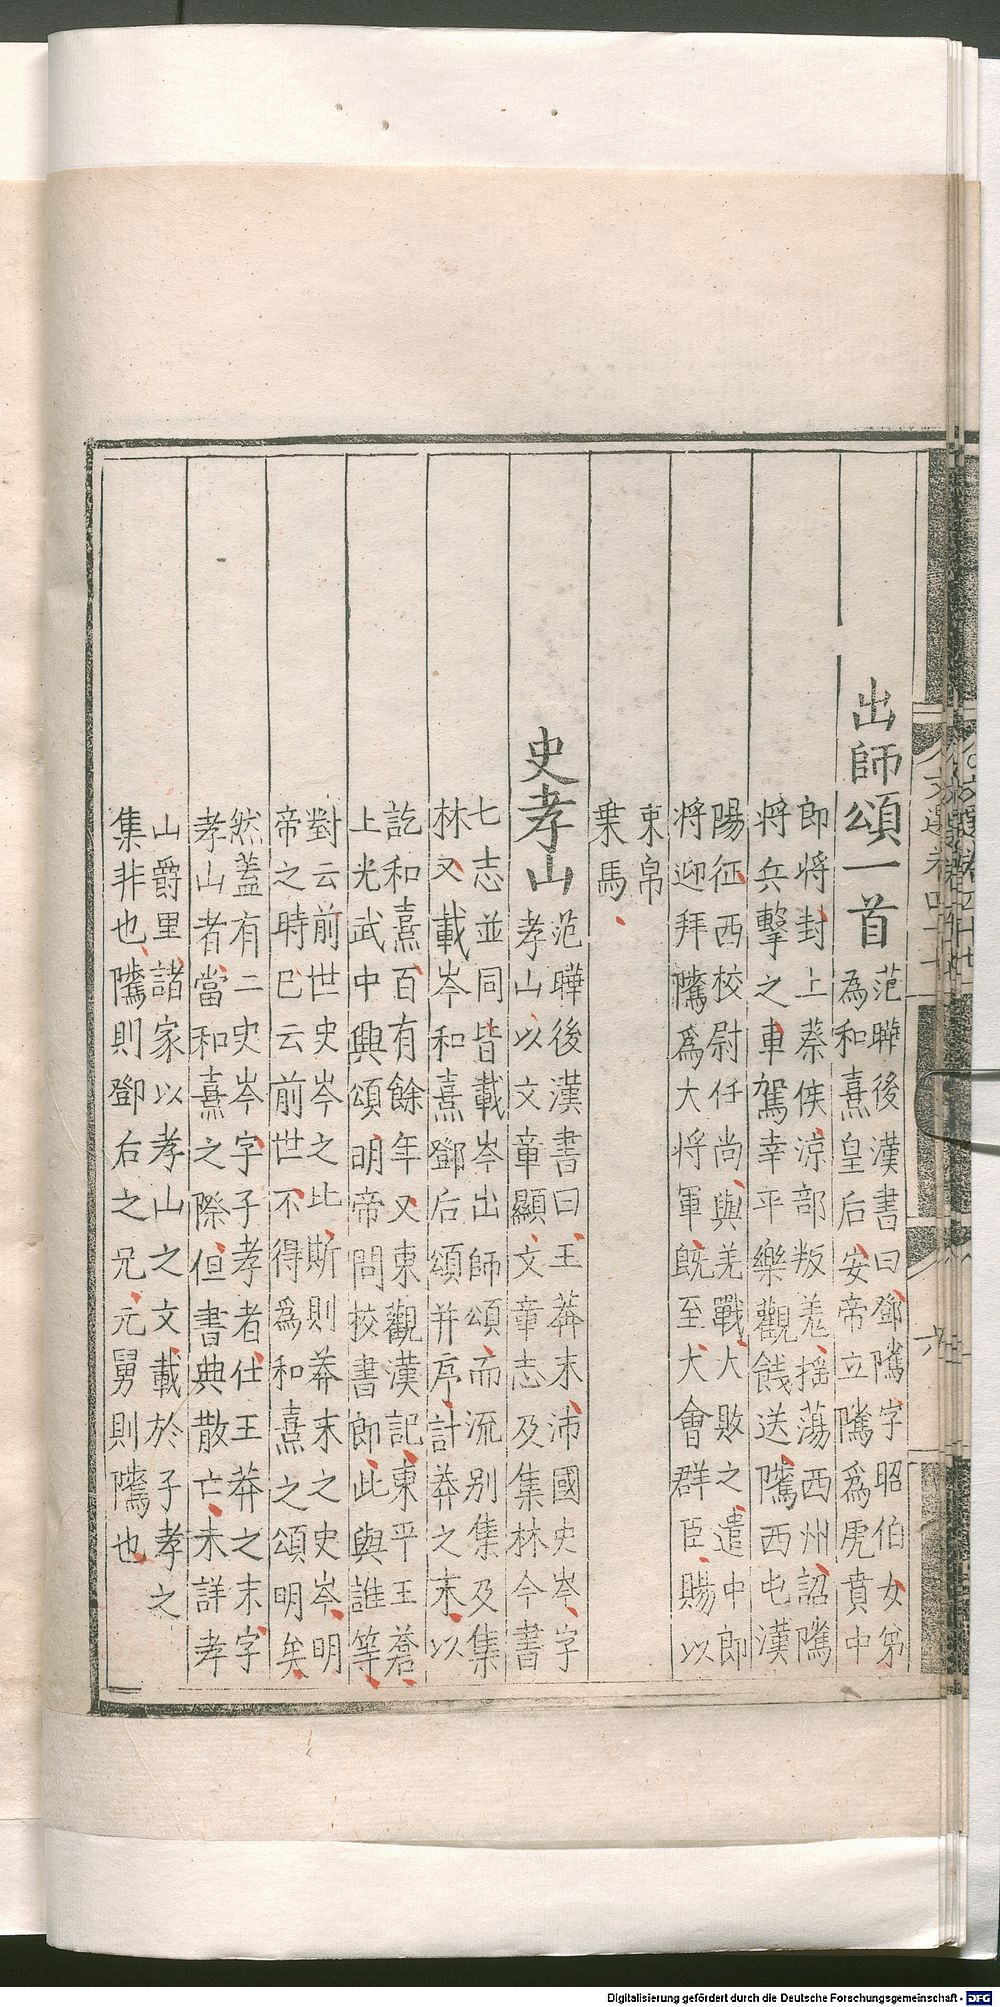 出師頌一首
范曄後漢書曰鄧騭字昭伯女弟
為和熹皇后安帝立騭爲虎賁中
郎將封上蔡侯涼部叛羌揺蕩西州詔騭
將兵擊之車駕幸平樂觀餞送騭西屯漢
陽征西校尉任尚與羌戰大敗之遣中郎
將迎拜騭爲大將軍旣至大會群臣賜以
束帛
乗馬
史孝山
范曄後漢書曰王莽末沛國史岑字
孝山以文章顯文章志及集林今書
七志並同皆載岑出師頌而流别集及集
林又載岑和熹鄧后頌并序計莽之末以
訖和熹百有餘年又東觀漢記東平王蒼
上光武中興頌明帝問校書郎此與誰等
對云前世史岑之比斯則莽末之史岑明
帝之時已云前世不得爲和熹之頌明矣
然蓋有二史岑字子孝者仕王莽之末字
孝山者當和熹之際但書典散亡未詳孝
山爵里諸家以孝山之文載於子孝之
集非也騭則鄧后之兄元舅則騭也
六
Digitalisierung gefördert durch die Deutsche Forschungsgemeinschaft - DFG